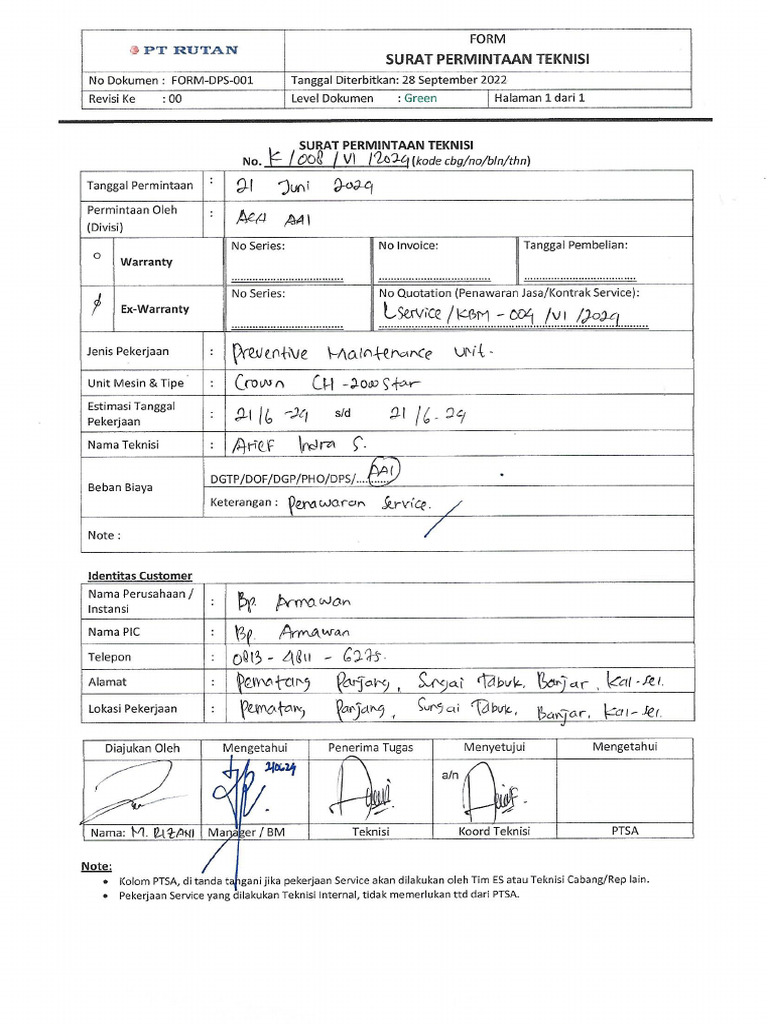 PT RUTAN
FORM
SURAT PERMINTAAN TEKNISI
No Dokumen : FORM-DPS-001
Tanggal Diterbitkan: 28 September 2022
Revisi Ke : 00
Level Dokumen : Green
Halaman 1 dari 1
SURAT PERMINTAAN TEKNISI
No. K/008/VI/2024 (kode cbg/no/bln/thn)
Tanggal Permintaan : 21 Juni 2024
Permintaan Oleh (Divisi) : AAI
Warranty
No Series: ..............................
No Invoice: ..............................
Tanggal Pembelian: ..............................
Ex-Warranty
No Series: ..............................
No Quotation (Penawaran Jasa/Kontrak Service):
Service/KBM-004/VI/2024
Jenis Pekerjaan : Preventive Maintenance unit.
Unit Mesin & Tipe : Crown CH-2000 Star
Estimasi Tanggal Pekerjaan : 21/6-24 s/d 21/6-24
Nama Teknisi : Arief Indra S.
Beban Biaya
DGTP/DOF/DGP/PHO/DPS/ AAI
Keterangan : Penawaran Service.
Note :
Identitas Customer
Nama Perusahaan / Instansi : Bp. Armawan
Nama PIC : Bp. Armawan
Telepon : 0813-4811-6275.
Alamat : Pematang Panjang, Sungai Tabuk, Banjar, Kal-sel.
Lokasi Pekerjaan : Pematang Panjang, Sungai Tabuk, Banjar, Kal-sel.
Diajukan Oleh
Mengetahui
Penerima Tugas
Menyetujui
Mengetahui
210624
a/n
Nama: M. RIZANI
Manager / BM
Teknisi
Koord Teknisi
PTSA
Note:
• Kolom PTSA, di tanda tangani jika pekerjaan Service akan dilakukan oleh Tim ES atau Teknisi Cabang/Rep lain.
• Pekerjaan Service yang dilakukan Teknisi Internal, tidak memerlukan ttd dari PTSA.